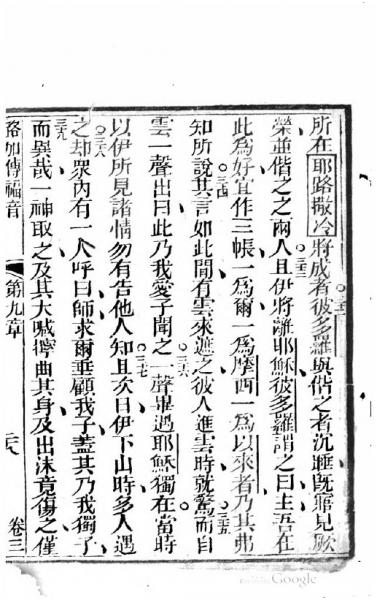 所在耶路撒冷將成者○三二彼多羅與偕之者沉睡旣寤見厥
榮並偕之之兩人○三三且伊將離耶穌彼多羅謂之曰主吾在
此為好宜作三帳一為爾一為摩西一為以來者乃其弗
知所說○三四其言如此間有雲來遮之彼人進雲時就驚○三五而自
雲一聲出曰此乃我愛子聞之○三六一聲畢過耶穌獨在當時
以伊所見諸情勿有告他人知○三七且次日伊下山時多人遇
之○三八却眾內有一人呼曰師求爾垂顧我子蓋其乃我獨子
三九而哉一神取之及其大喊曲其身及出沫竟傷之僅
路加傳福音 第九章 二八 卷三
Google